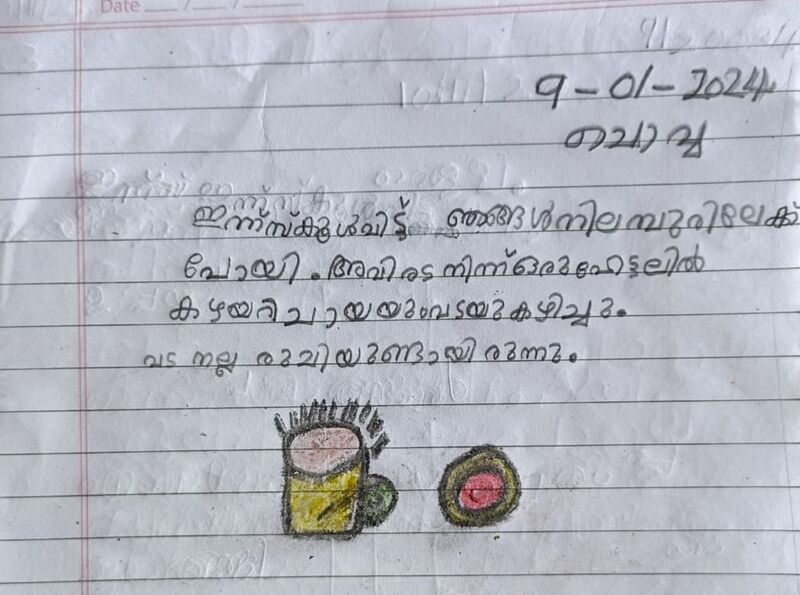 Date __/__/__
9-01-2024
ചൊവ്വ
ഇന്ന് സ്കൂൾവിട്ട് ഞങ്ങൾ നിലമ്പൂരിലേക്
പോയി. അവിടെ നിന്ന് ഒരു ഹോട്ടലിൽ
കഴയറി ചായയും വടയു കഴിച്ചു.
വട നല്ല രുചിയുണ്ടായിരുന്നു.